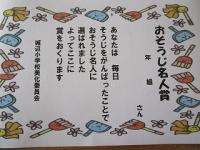 おそうじ名人賞
年 組
さん
あなたは 毎日
そうじをがんばったことで
おそうじ名人に
選ばれました
よってここに
賞をおくります
城辺小学校美化委員会